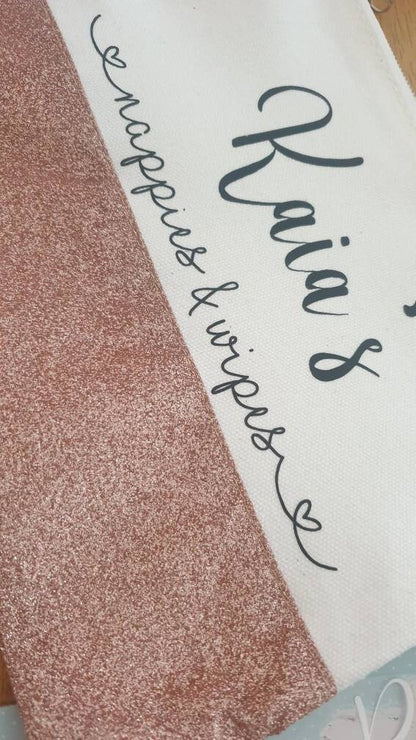 Kaia's
nappies & wipes